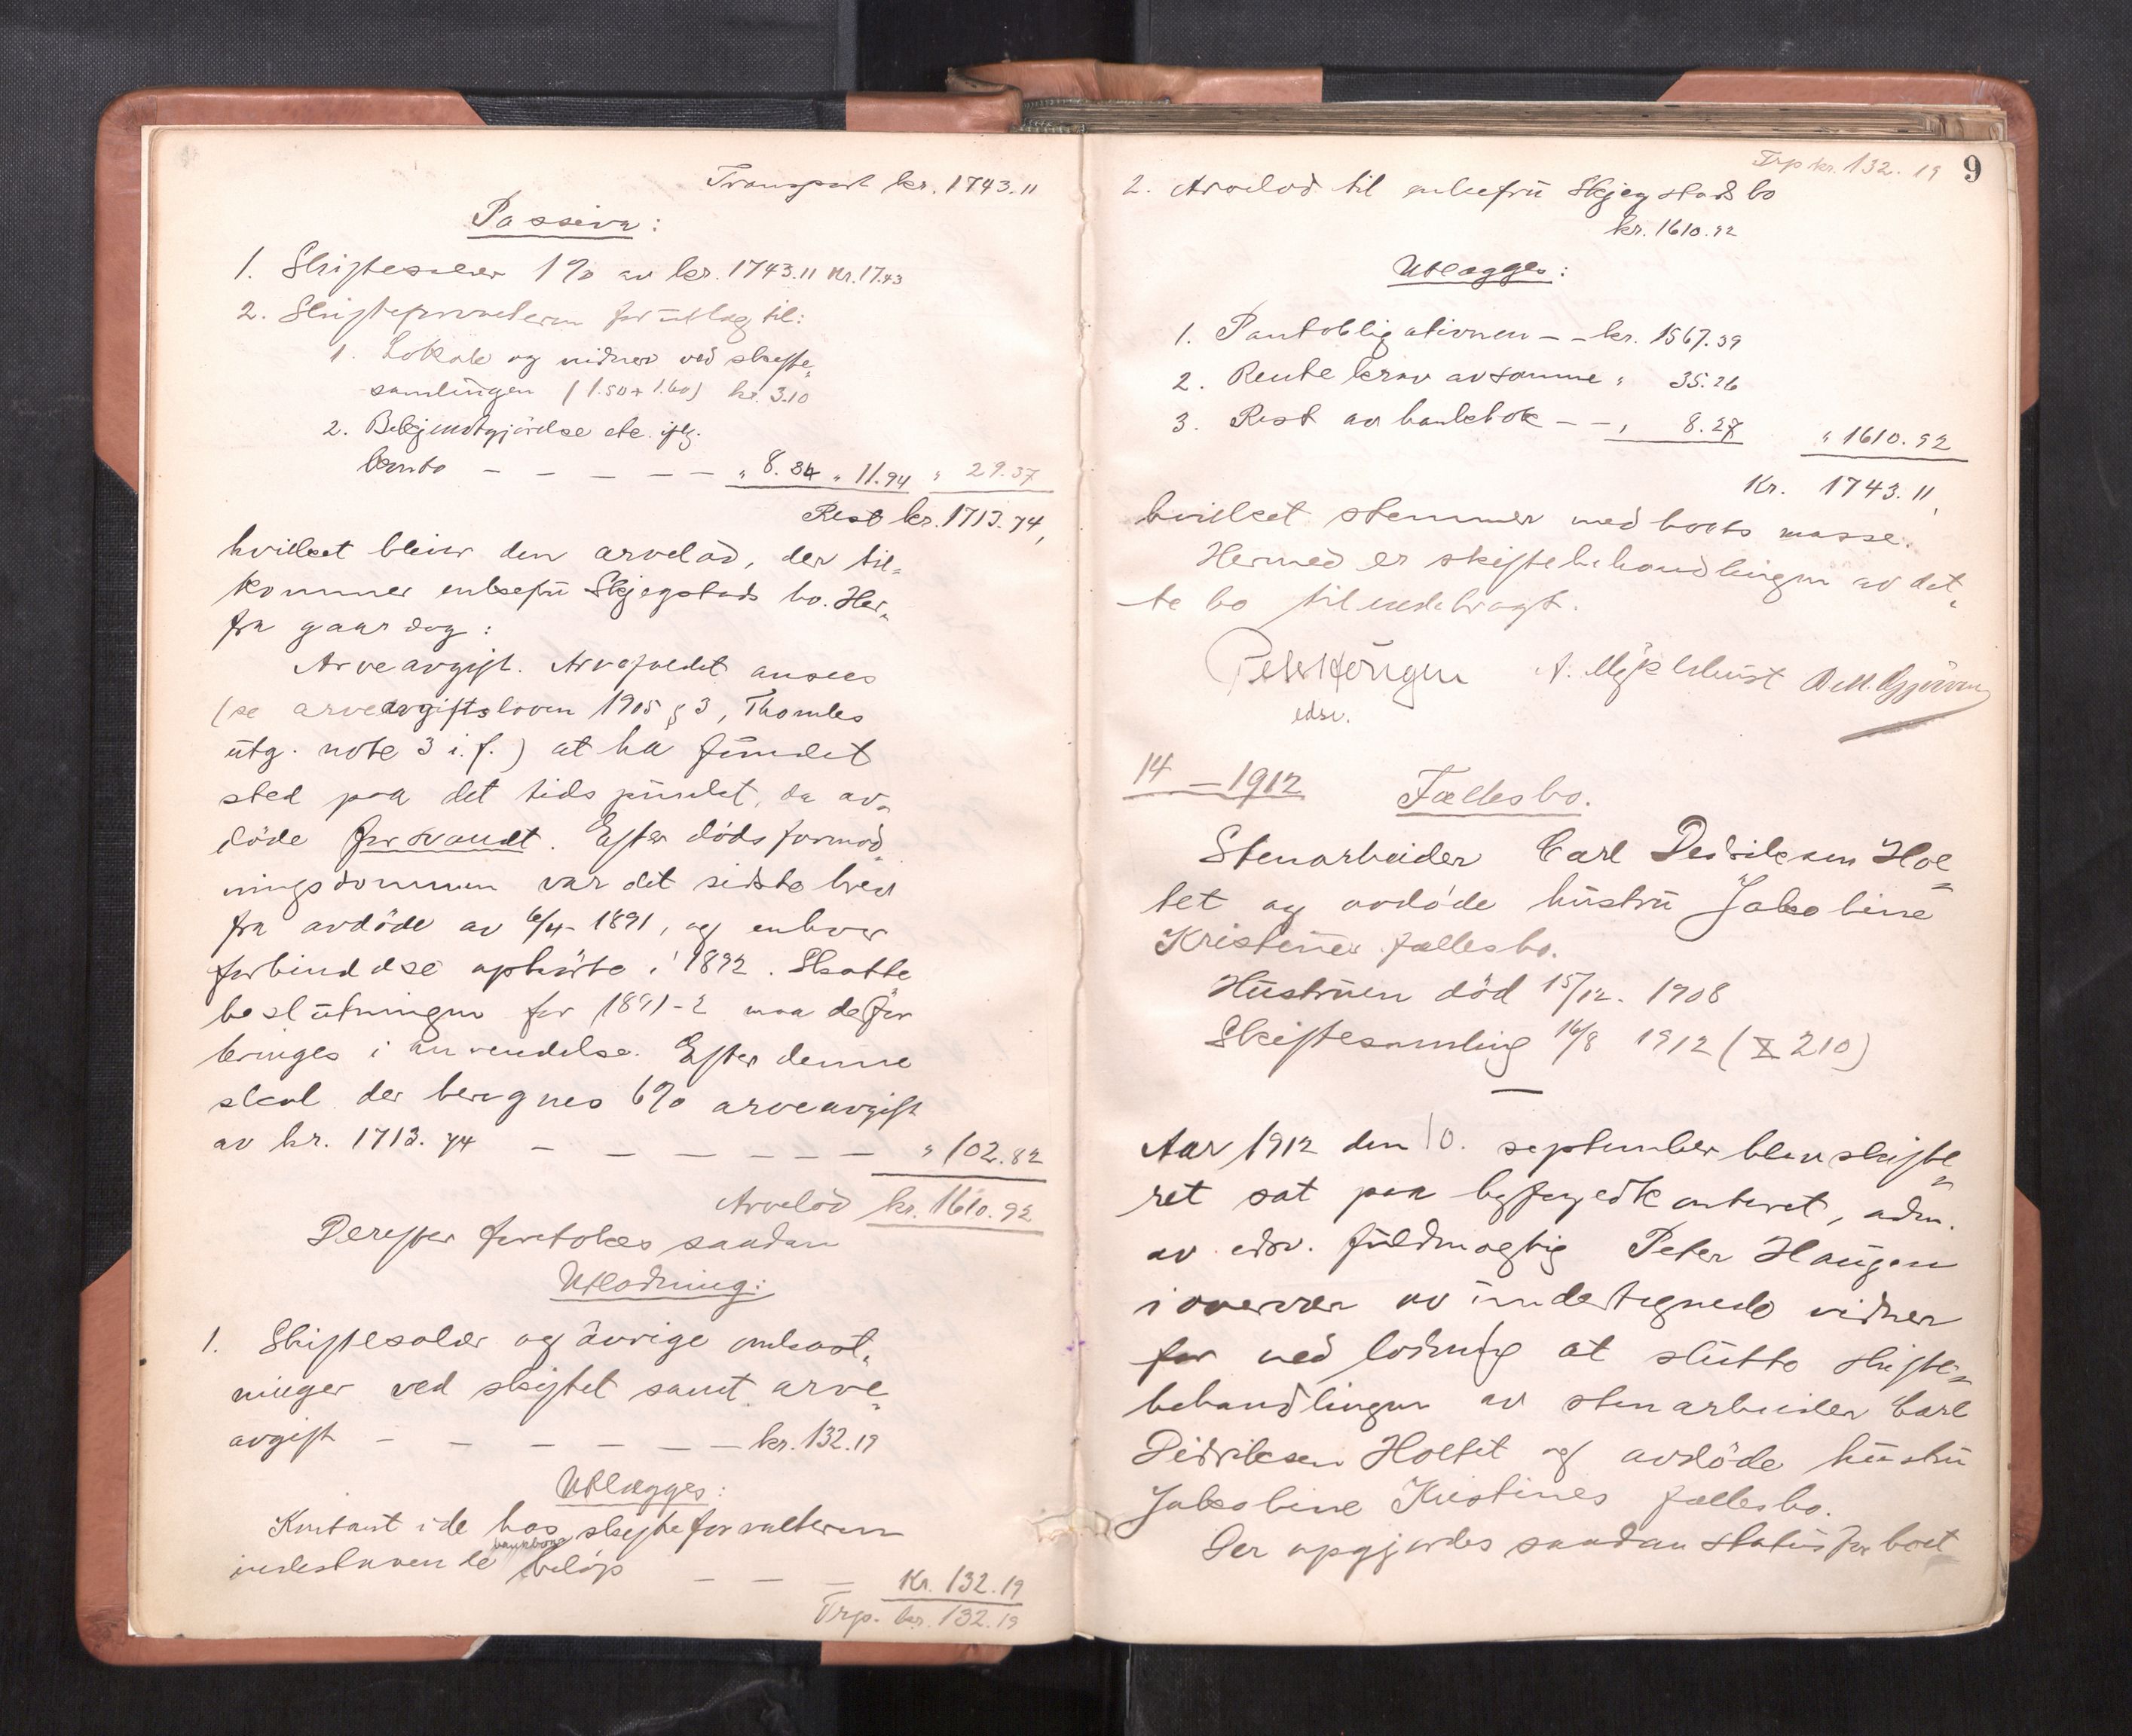 Transport kr. 1743.11
Passiva:
1. Skiftesalær 1% av kr. 1743.11 kr. 17.43
2. Skifteforvalteren for utlæg til:
1. Lokale og vidner ved skifte-
samlingen (1.50 + 1.60) kr. 3.10
2. Bekjendtgjörelse etc. iflg.
konto — — — — — " 8.84 " 11.94 " 29.37
Rest kr. 1713.74,
hvilket bliver den arvelod, der til-
kommer enkefru Skjegstads bo. Her-
fra gaar dog:
Arveavgift. Arvefaldet ansees
(se arveavgiftsloven 1905 § 3, Thombs
utg. note 3 i. f.) at ha fundet
sted paa det tidspunkt, da av-
döde forsvandt. Efter dödsformod-
ningsdommen var det sidste brev
fra avdöde av 6/4-1891, og enhver
forbindelse ophörte i 1892. Skatte
beslutningen for 1891-2 maa derfor
bringes i anvendelse. Efter denne
skal der beregnes 6% arveavgift
av kr. 1713.74 — — — — — — " 102.82
Arvelod kr. 1610.92
Derefter foretokes saadan
Utlodning:
1. Skiftesalær og övrige omkost-
ninger ved skiftet samt arve-
avgift — — — — — — kr. 132.19
Utlægges:
Kontant i de hos skifteforvalteren
bankbok
indestaaende beløp — — — Kr. 132.19
Trp. kr. 132.19
Trp kr. 132.19 9
2. Arvelod til enkefru Skjegstads bo
kr. 1610.92
Utlægges:
1. Pantobligationen — — kr. 1567.39
2. Rentekrav av samme " 35.26
3. Rest av bankbok — — " 8.27 " 1610.92
Kr. 1743.11,
hvilket stemmer med boets masse.
Hermed er skiftebehandlingen av det-
te bo tilendebragt.
Peter Haugen A. Myklebust
edsv.
14 — 1912 Fællesbo.
Stenarbeider Carl Didriksen Hol-
tet og avdöde hustru Jakobine
Kristines fællesbo.
Hustruen död 15/12-1908
Skiftesamling 16/8 1912 (X 210)
Aar 1912 den 10. september blev skifte-
ret sat paa byfogedkontoret, adm.
av edsv. fuldmægtig Peter Haugen
i overvær av undertegnede vidner
for ved lodning at slutte skifte-
behandlingen av stenarbeider Carl
Didriksen Holtet og avdöde hustru
Jakobine Kristines fællesbo.
Der opgjordes saadan status for boet